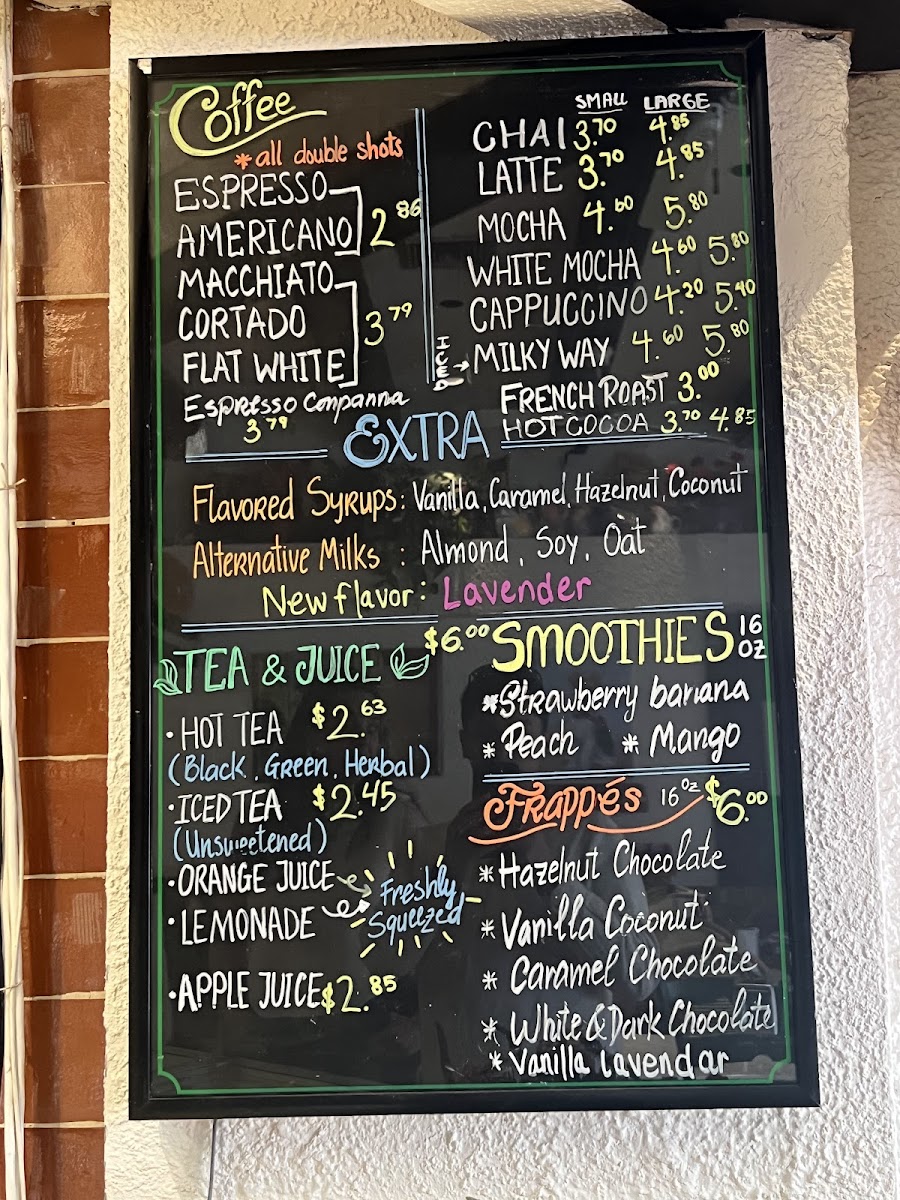 Coffee
*all double shots
ESPRESSO
AMERICANO 2.86
MACCHIATO
CORTADO 3.79
FLAT WHITE
Espresso Conpanna
3.79
SMALL LARGE
CHAI 3.70 4.85
LATTE 3.70 4.85
MOCHA 4.60 5.80
WHITE MOCHA 4.60 5.80
CAPPUCCINO 4.20 5.40
MILKY WAY 4.60 5.80
FRENCH ROAST 3.00
HOT COCOA 3.70 4.85
EXTRA
Flavored Syrups: Vanilla, Caramel, Hazelnut, Coconut
Alternative Milks : Almond, Soy, Oat
New flavor: Lavender
TEA & JUICE
• HOT TEA $2.63
(Black, Green, Herbal)
• ICED TEA $2.45
(Unsweetened)
• ORANGE JUICE
• LEMONADE
Freshly
Squeezed
• APPLE JUICE $2.85
$6.00 SMOOTHIES 16 OZ
*Strawberry banana
* Peach * Mango
Frappés 16 oz $6.00
* Hazelnut Chocolate
* Vanilla Coconut
* Caramel Chocolate
* White & Dark Chocolate
* Vanilla lavendar